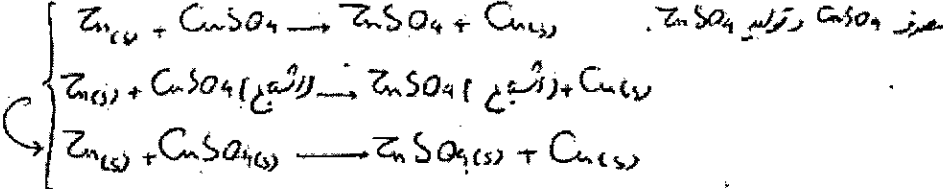 Zn(s) + CuSO4 → ZnSO4 + Cu(s) . ZnSO4 و تولید CuSO4 مصرف
Zn(s) + CuSO4 (اشباع) → ZnSO4 (اشباع) + Cu(s)
Zn(s) + CuSO4(s) → ZnSO4(s) + Cu(s)